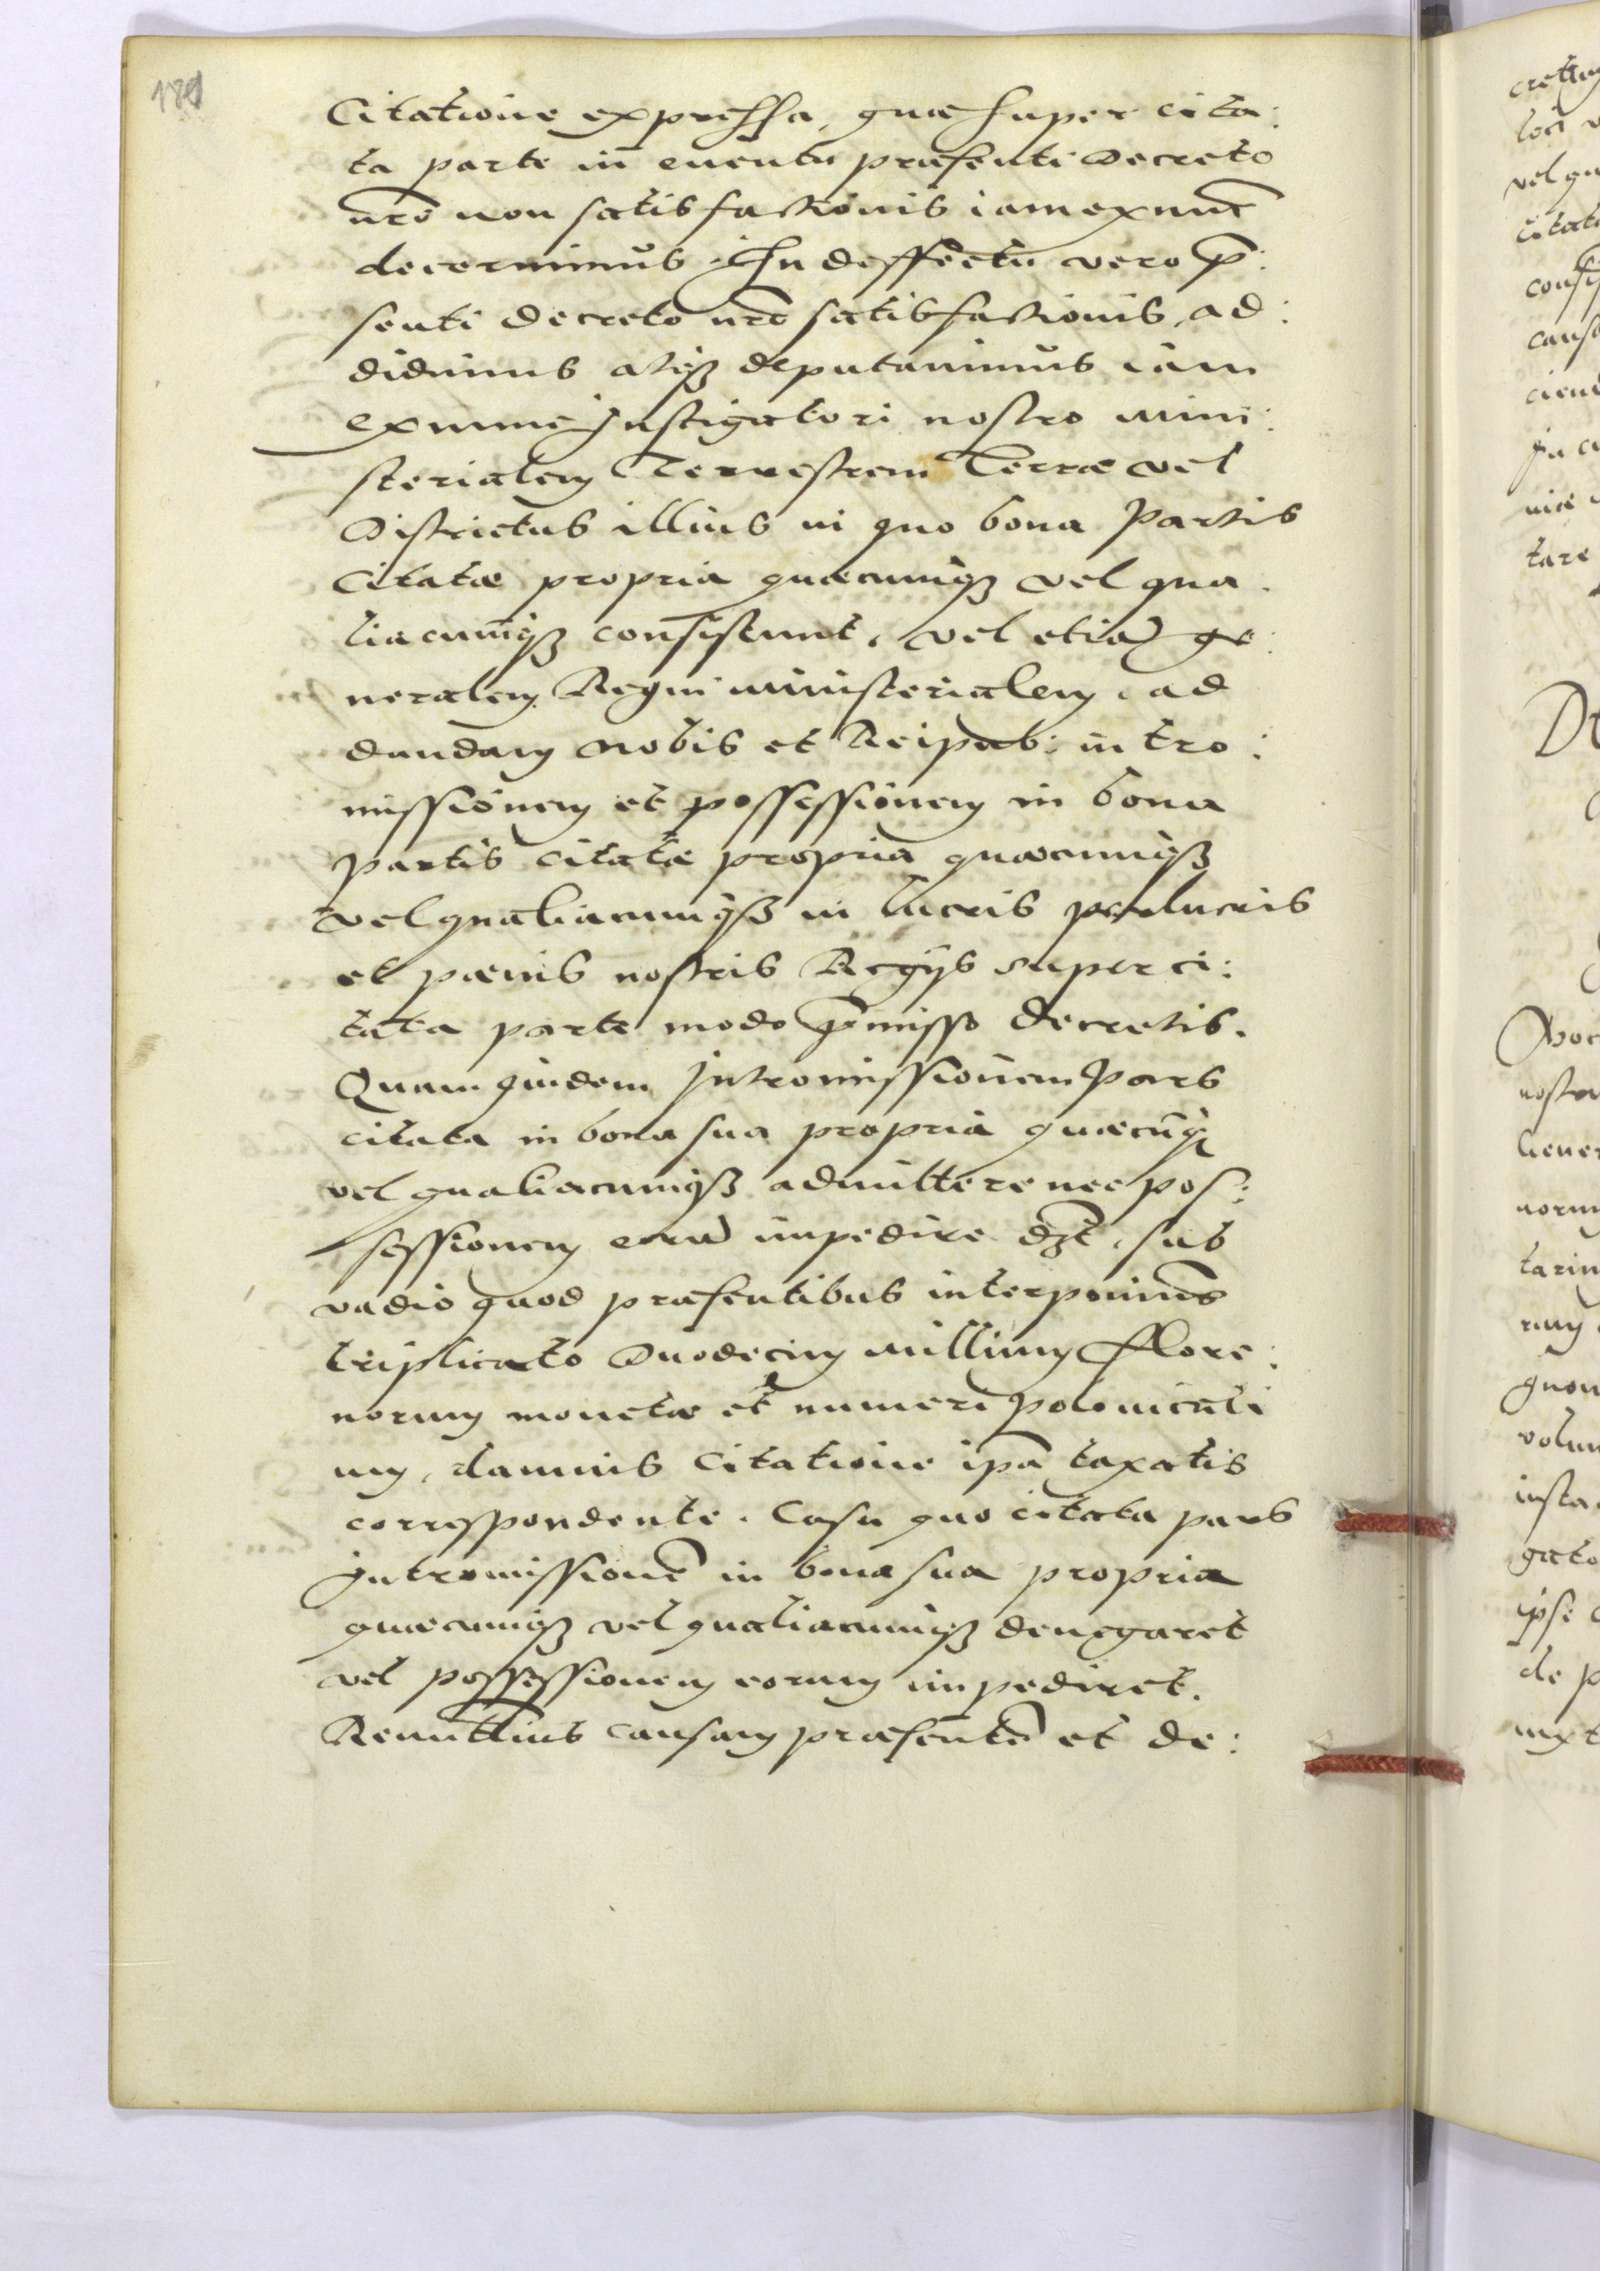 189
Citatione expressa, quae super cita:
ta parte in euentu praesenti Decreto
nro non satisfactionis iam ex nunc
decernimus. In deffectu vero p̃:
senti decreto nro satisfactionis, ad:
didimus atq; deputauimus iam
ex nunc Instigatori nostro mini:
sterialem Terrestrem Terrae vel
Districtus illius in quo bona Partis
Citatae propria quaecunq; vel qua:
liacunq; consistunt, vel etiã ge:
neralem Regni ministerialem, ad
dandam nobis et Reipub: intro:
missionem et possessionem in bona
partis citatae propria quaecunq;
vel qualiacunq; in lucris perlucris
et paenis nostris Regijs super ci:
tata parte modo p̃misso decretis.
Quam quidem Intromissionem Pars
citata in bona sua propria quaecũq;
vel qualiacunq; admittere nec pos:
sessionem eorũ impedire dẽt, sub
vadio quod praesentibus interponimus
triplicato Duodecim millium Flore:
norum monetae et numeri polonicali
um, damnis Citatione ipã taxatis
correspondente. Casu quo citata pars
Intromissionẽ in bona sua propria
quaecunq; vel qualiacunq; denegaret
vel possessionem eorum impediret.
Remittimus causam praesentẽ et de: